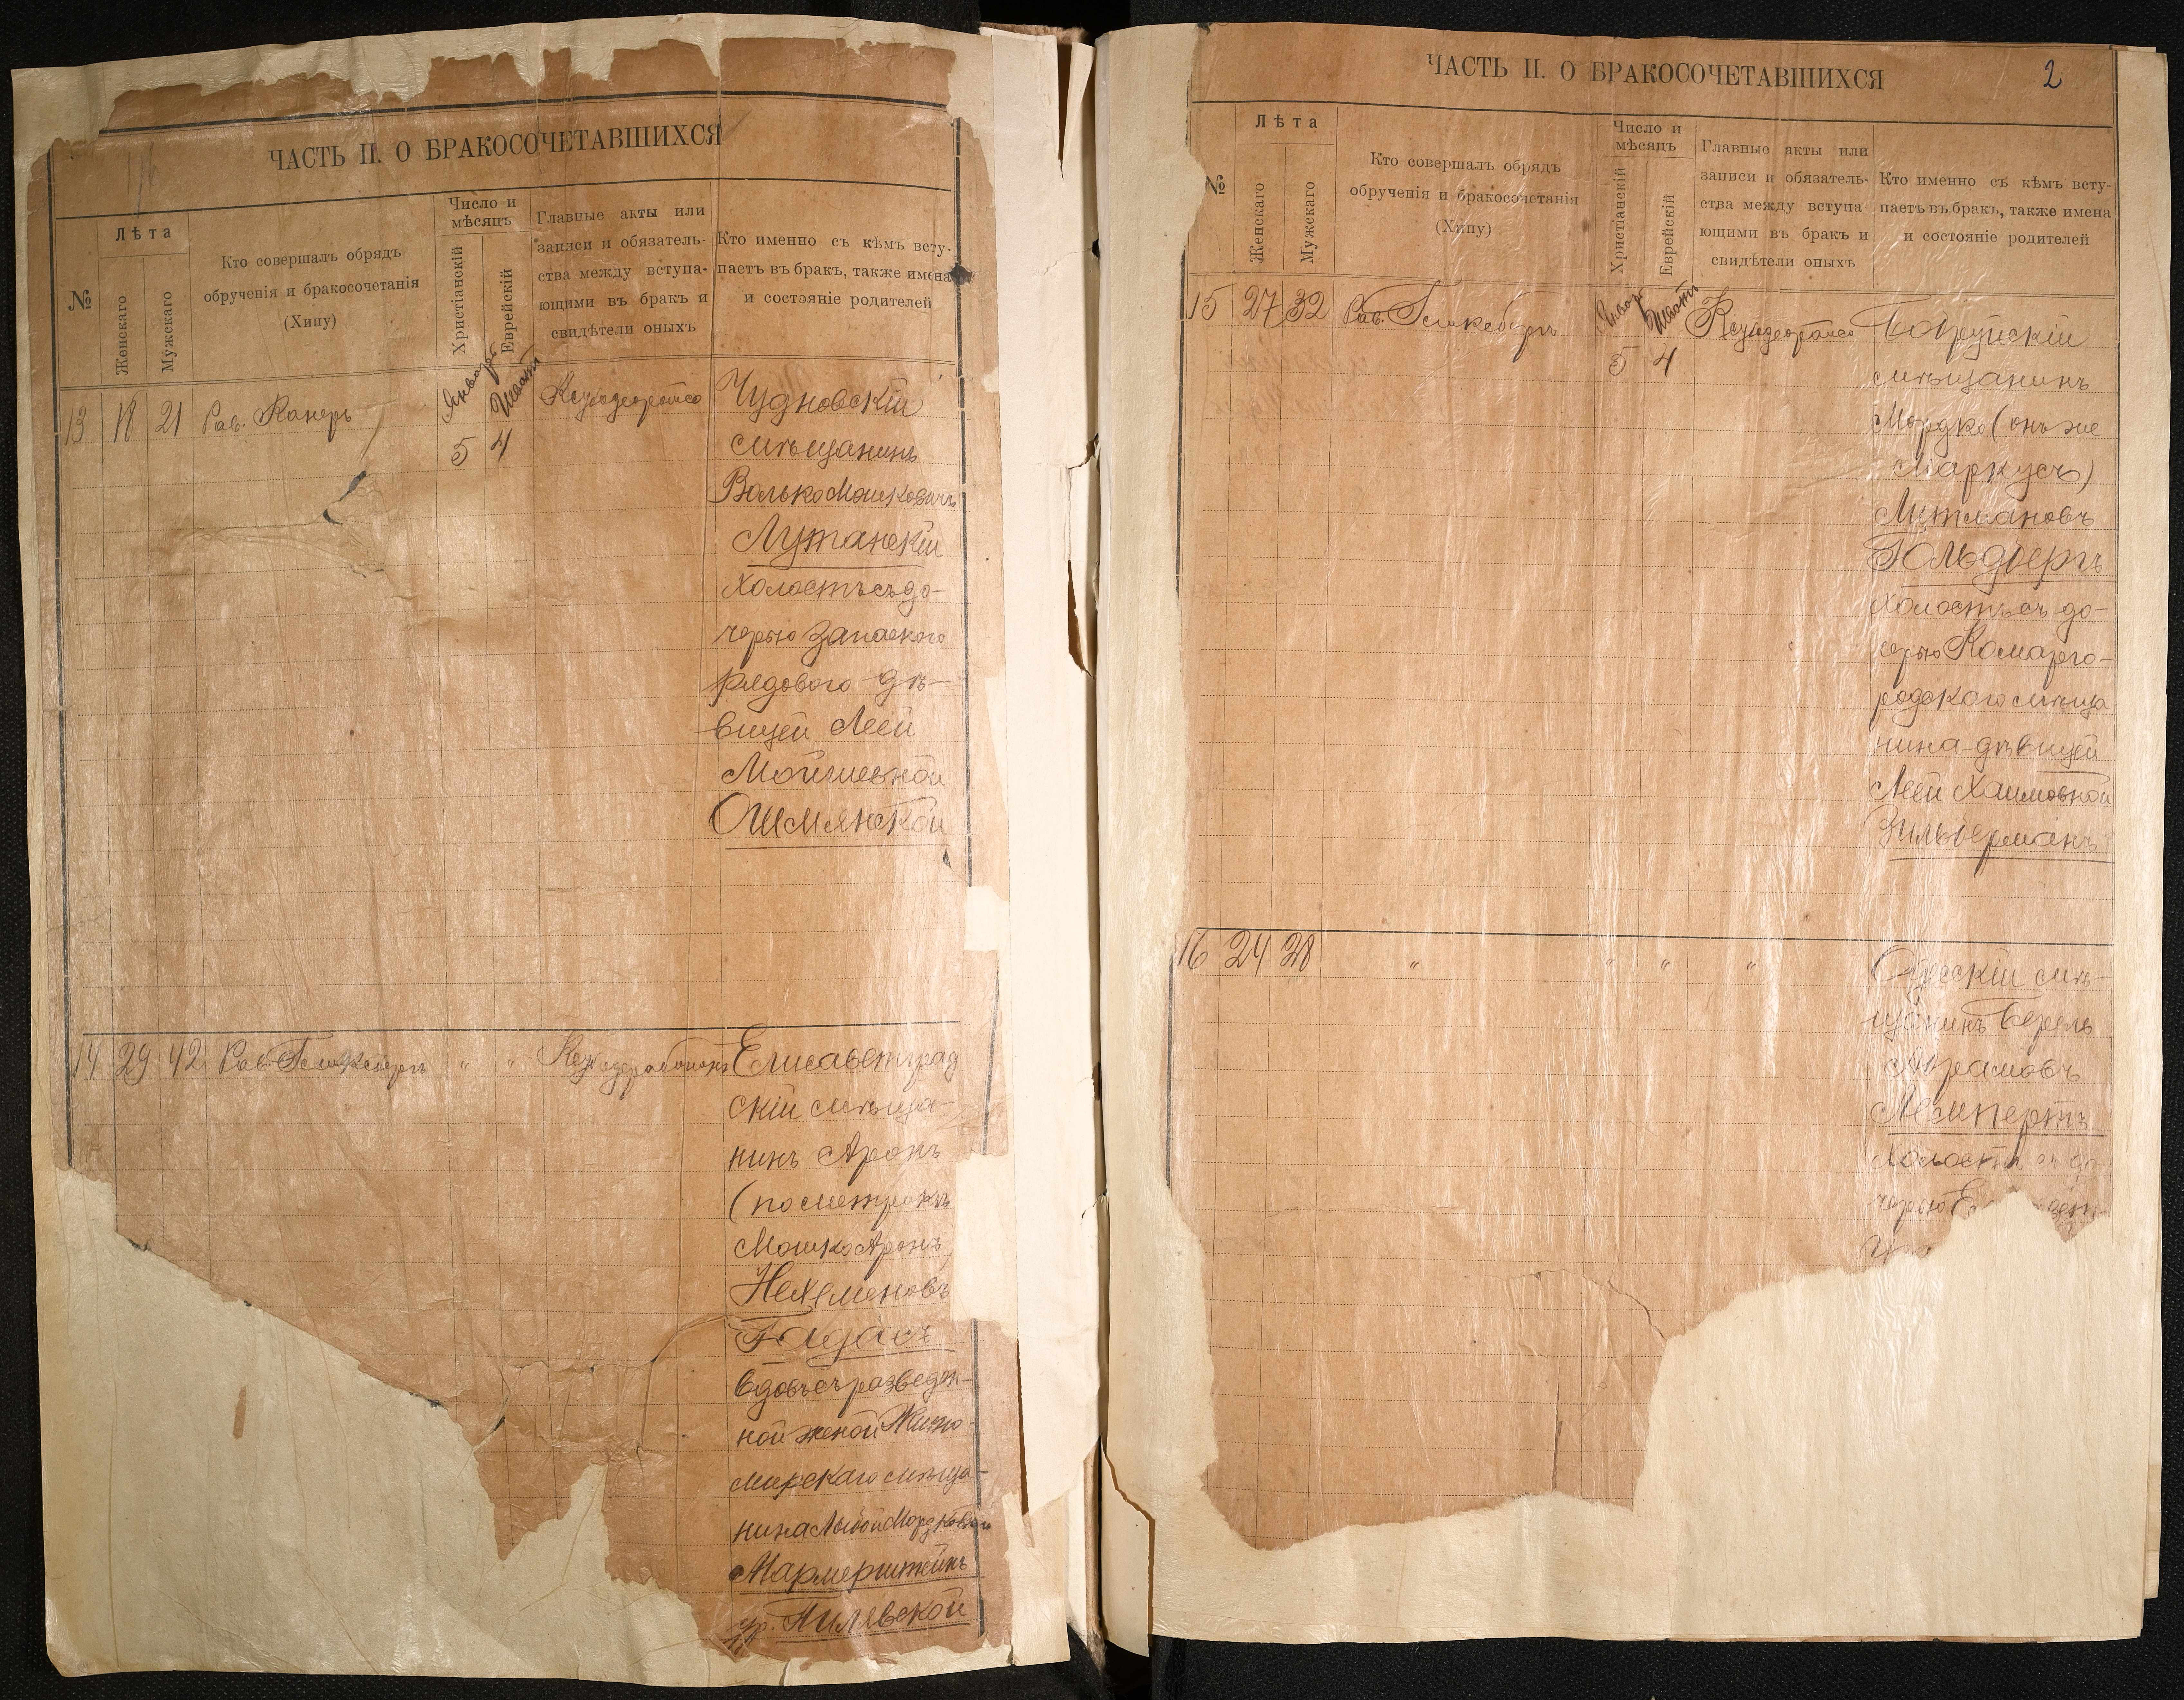 ЧАСТЬ II. О БРАКОСОЧЕТАВШИХСЯ
№
Лѣта
Женскаго
Мужскаго
Кто совершалъ обрядъ
обрученія и бракосочетанія
(Хипу)
Число и
мѣсяцъ
Христіанскій
Еврейскій
Главные акты или
записи и обязатель-
ства между вступа-
ющими въ бракъ и
свидѣтели оныхъ
Кто именно съ кѣмъ всту-
паетъ въ бракъ, также имена
и состояніе родителей
13 18 21 Рав. Январь Шватъ
5 4
Чудновскій
мѣщанинъ
Волько Мошковичъ
Лутанскій
холостъ съ до-
черью запаснаго
рядового дѣ-
вицей Леей
Мойшевной
Ошмянской
14 29 42 Рав. " "
Елисаветград
скій мѣща-
нинъ Аронъ
(по метрикѣ
Мошко Аронъ)
Нехеменовъ
вдовъ съ разведен-
ной женой Жито-
мирскаго мѣща-
нина
Мармерштейнъ
ур. Пилявской
ЧАСТЬ II. О БРАКОСОЧЕТАВШИХСЯ
2
№
Лѣта
Женскаго
Мужскаго
Кто совершалъ обрядъ
обрученія и бракосочетанія
(Хипу)
Число и
мѣсяцъ
Христіанскій
Еврейскій
Главные акты или
записи и обязатель-
ства между вступа
ющими въ бракъ и
свидѣтели оныхъ
Кто именно съ кѣмъ всту-
паетъ въ бракъ, также имена
и состояніе родителей
15 27 32 Рав. Январь Шватъ
5 4
мѣщанинъ
Мордко (онъ же
Маркусъ)
Литмановъ
Гольдбергъ
холостъ съ до-
черью Комарго-
родскаго мѣща
нина дѣвицей
Леей Хаимовной
Зильберманъ
16 24 28 " " " "
Одесскій мѣ-
щанинъ Берель
Абрамовъ
Лемпертъ
холостъ съ до-
черью